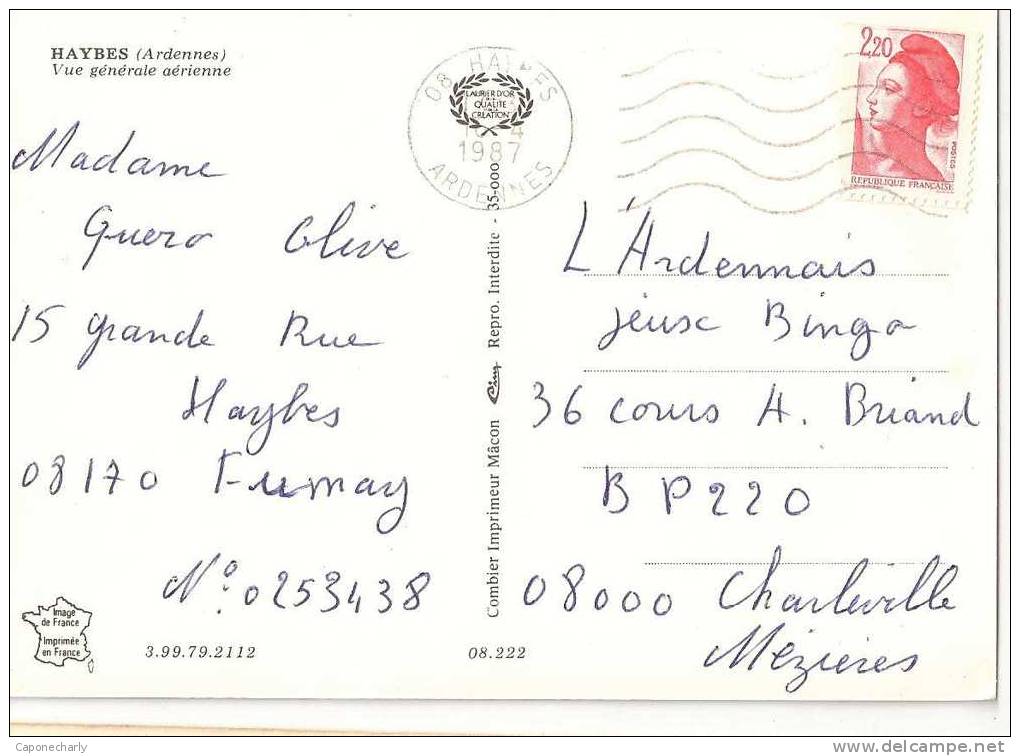 HAYBES (Ardennes)
Vue générale aérienne
08 HAYBES
LAURIER D'OR
QUALITÉ
CRÉATION
1987
ARDENNES
2,20
POSTES
REPUBLIQUE FRANÇAISE
Madame
Guero Olive
15 grande Rue
Haybes
08170 Fumay
N° 0253438
Combier Imprimeur Mâcon Cim Repro. Interdite - 35-000
L'Ardennais
jeux Bingo
36 cours A. Briand
BP220
08000 Charleville
Mézieres
Image
de France
Imprimée
en France
3.99.79.2112
08.222
Caponecharly
www.delcampe.net